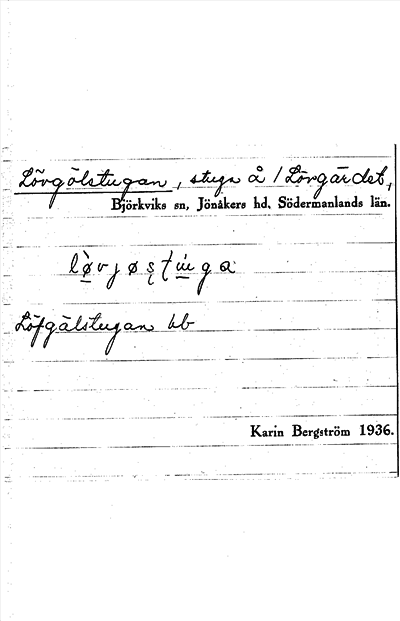 Lövgölstugan, stuga å 1 Lövgärdet,
Björkviks sn, Jönåkers hd, Södermanlands län.
Löfgälstugan hb
Karin Bergström 1936.